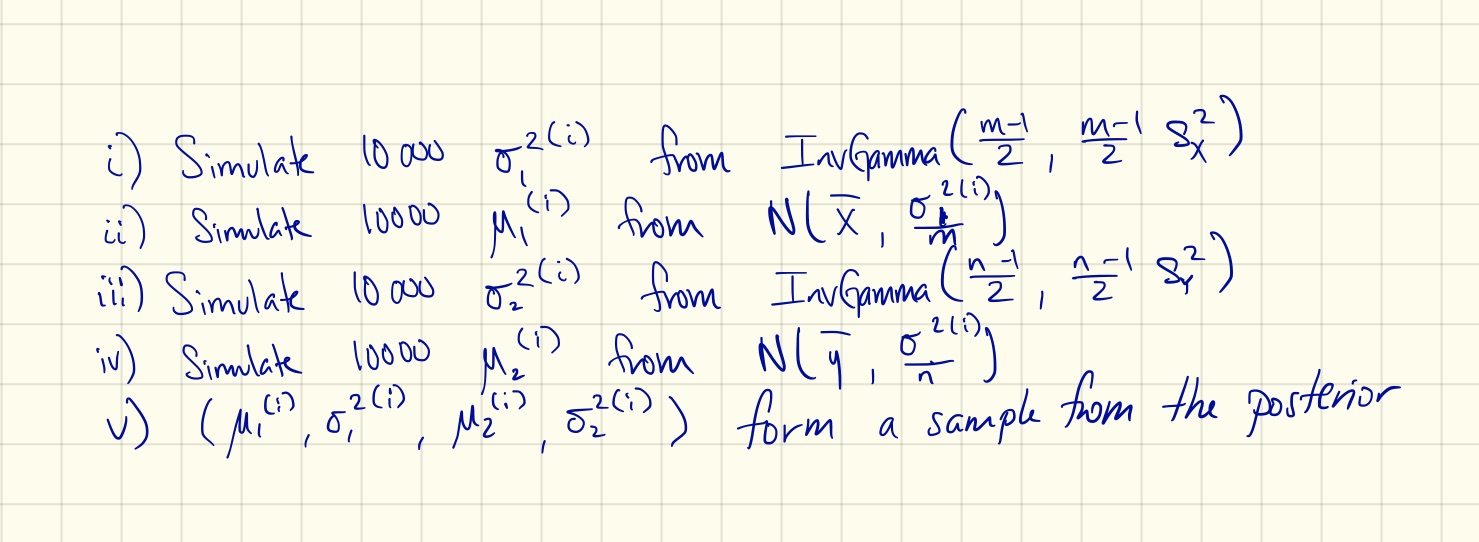 i) Simulate 10000 σ₁²⁽ⁱ⁾ from InvGamma((m-1)/2, (m-1)/2 Sₓ²)
ii) Simulate 10000 μ₁⁽ⁱ⁾ from N(x̄, σ²⁽ⁱ⁾/m)
iii) Simulate 10000 σ₂²⁽ⁱ⁾ from InvGamma((n-1)/2, (n-1)/2 S_Y²)
iv) Simulate 10000 μ₂⁽ⁱ⁾ from N(ȳ, σ²⁽ⁱ⁾/n)
v) (μ₁⁽ⁱ⁾, σ₁²⁽ⁱ⁾, μ₂⁽ⁱ⁾, σ₂²⁽ⁱ⁾) form a sample from the posterior